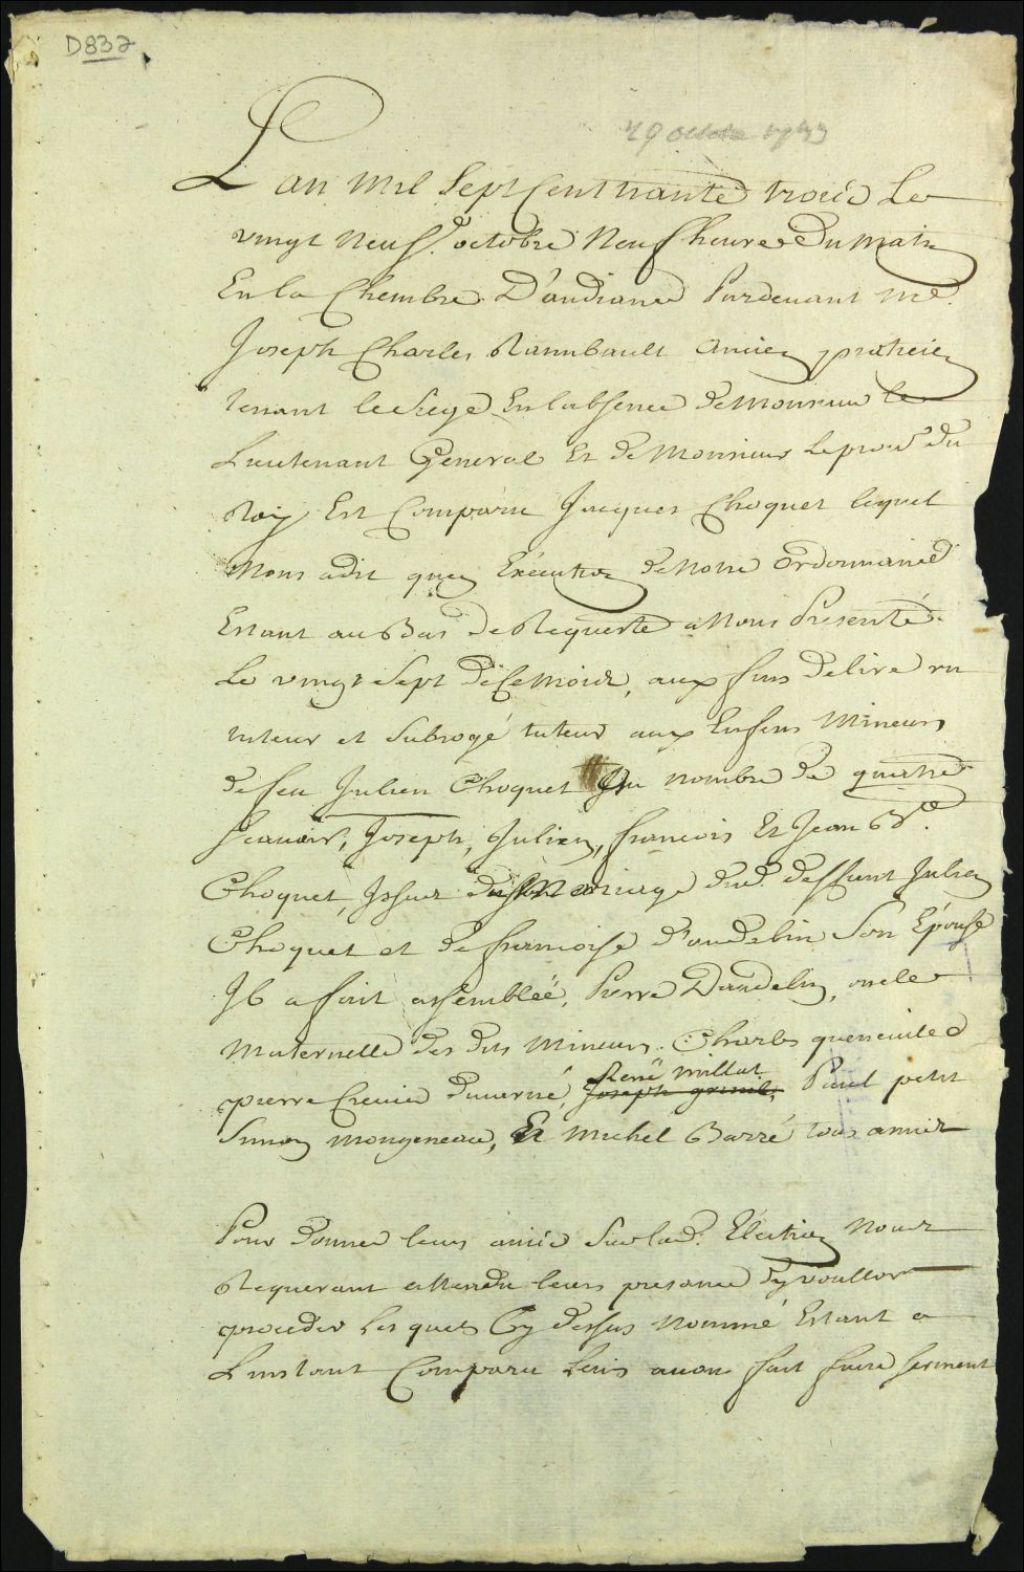 D837
29 octobre 1733
Lan mil Sept Cent trante trois Le
vingt Neuf.e octobre Neuf heures Du matin
En la Chembre D'audiance Pardevant me.
Joseph Charles Raimbault Ancien praticien
tenant le Siege En labsence De Monsieur le
Lieutenant General Et De Monsieur Le procr du
Roy Est Comparu Jacques Choquet lequel
Nous adit quen Execution De Notre Ordonnance
Estant au Bas De Requeste a Nous Presenté
Le vingt Sept De Ce Mois, aux fins De lire un
tuteur et Subrogé tuteur aux Enfens Mineurs
de feu Julien Choquet Au nombre De quatre
Scavoir, Joseph, Julien, francois Et Jean Bte.
Choquet, Issus Du Mariage dud. deffunt Julien
Choquet et De francoise D'audelin Son Épouse
Il a fait assemblée, Pierre Daudelin, oncle
Maternelle des dits Mineurs. Charles queneville
René millat
pierre Crevier Duverné, Joseph Paul petit
Simon mongeneau, Et Michel Barré tous amis
Pour Donner leurs avis Sur lad. Election Nous
Requerant attendu leurs presance Dy voulloir
proceder Les quels Cy dessus Nommé Estant a
Linstant Comparu Leurs avons fait faire serment